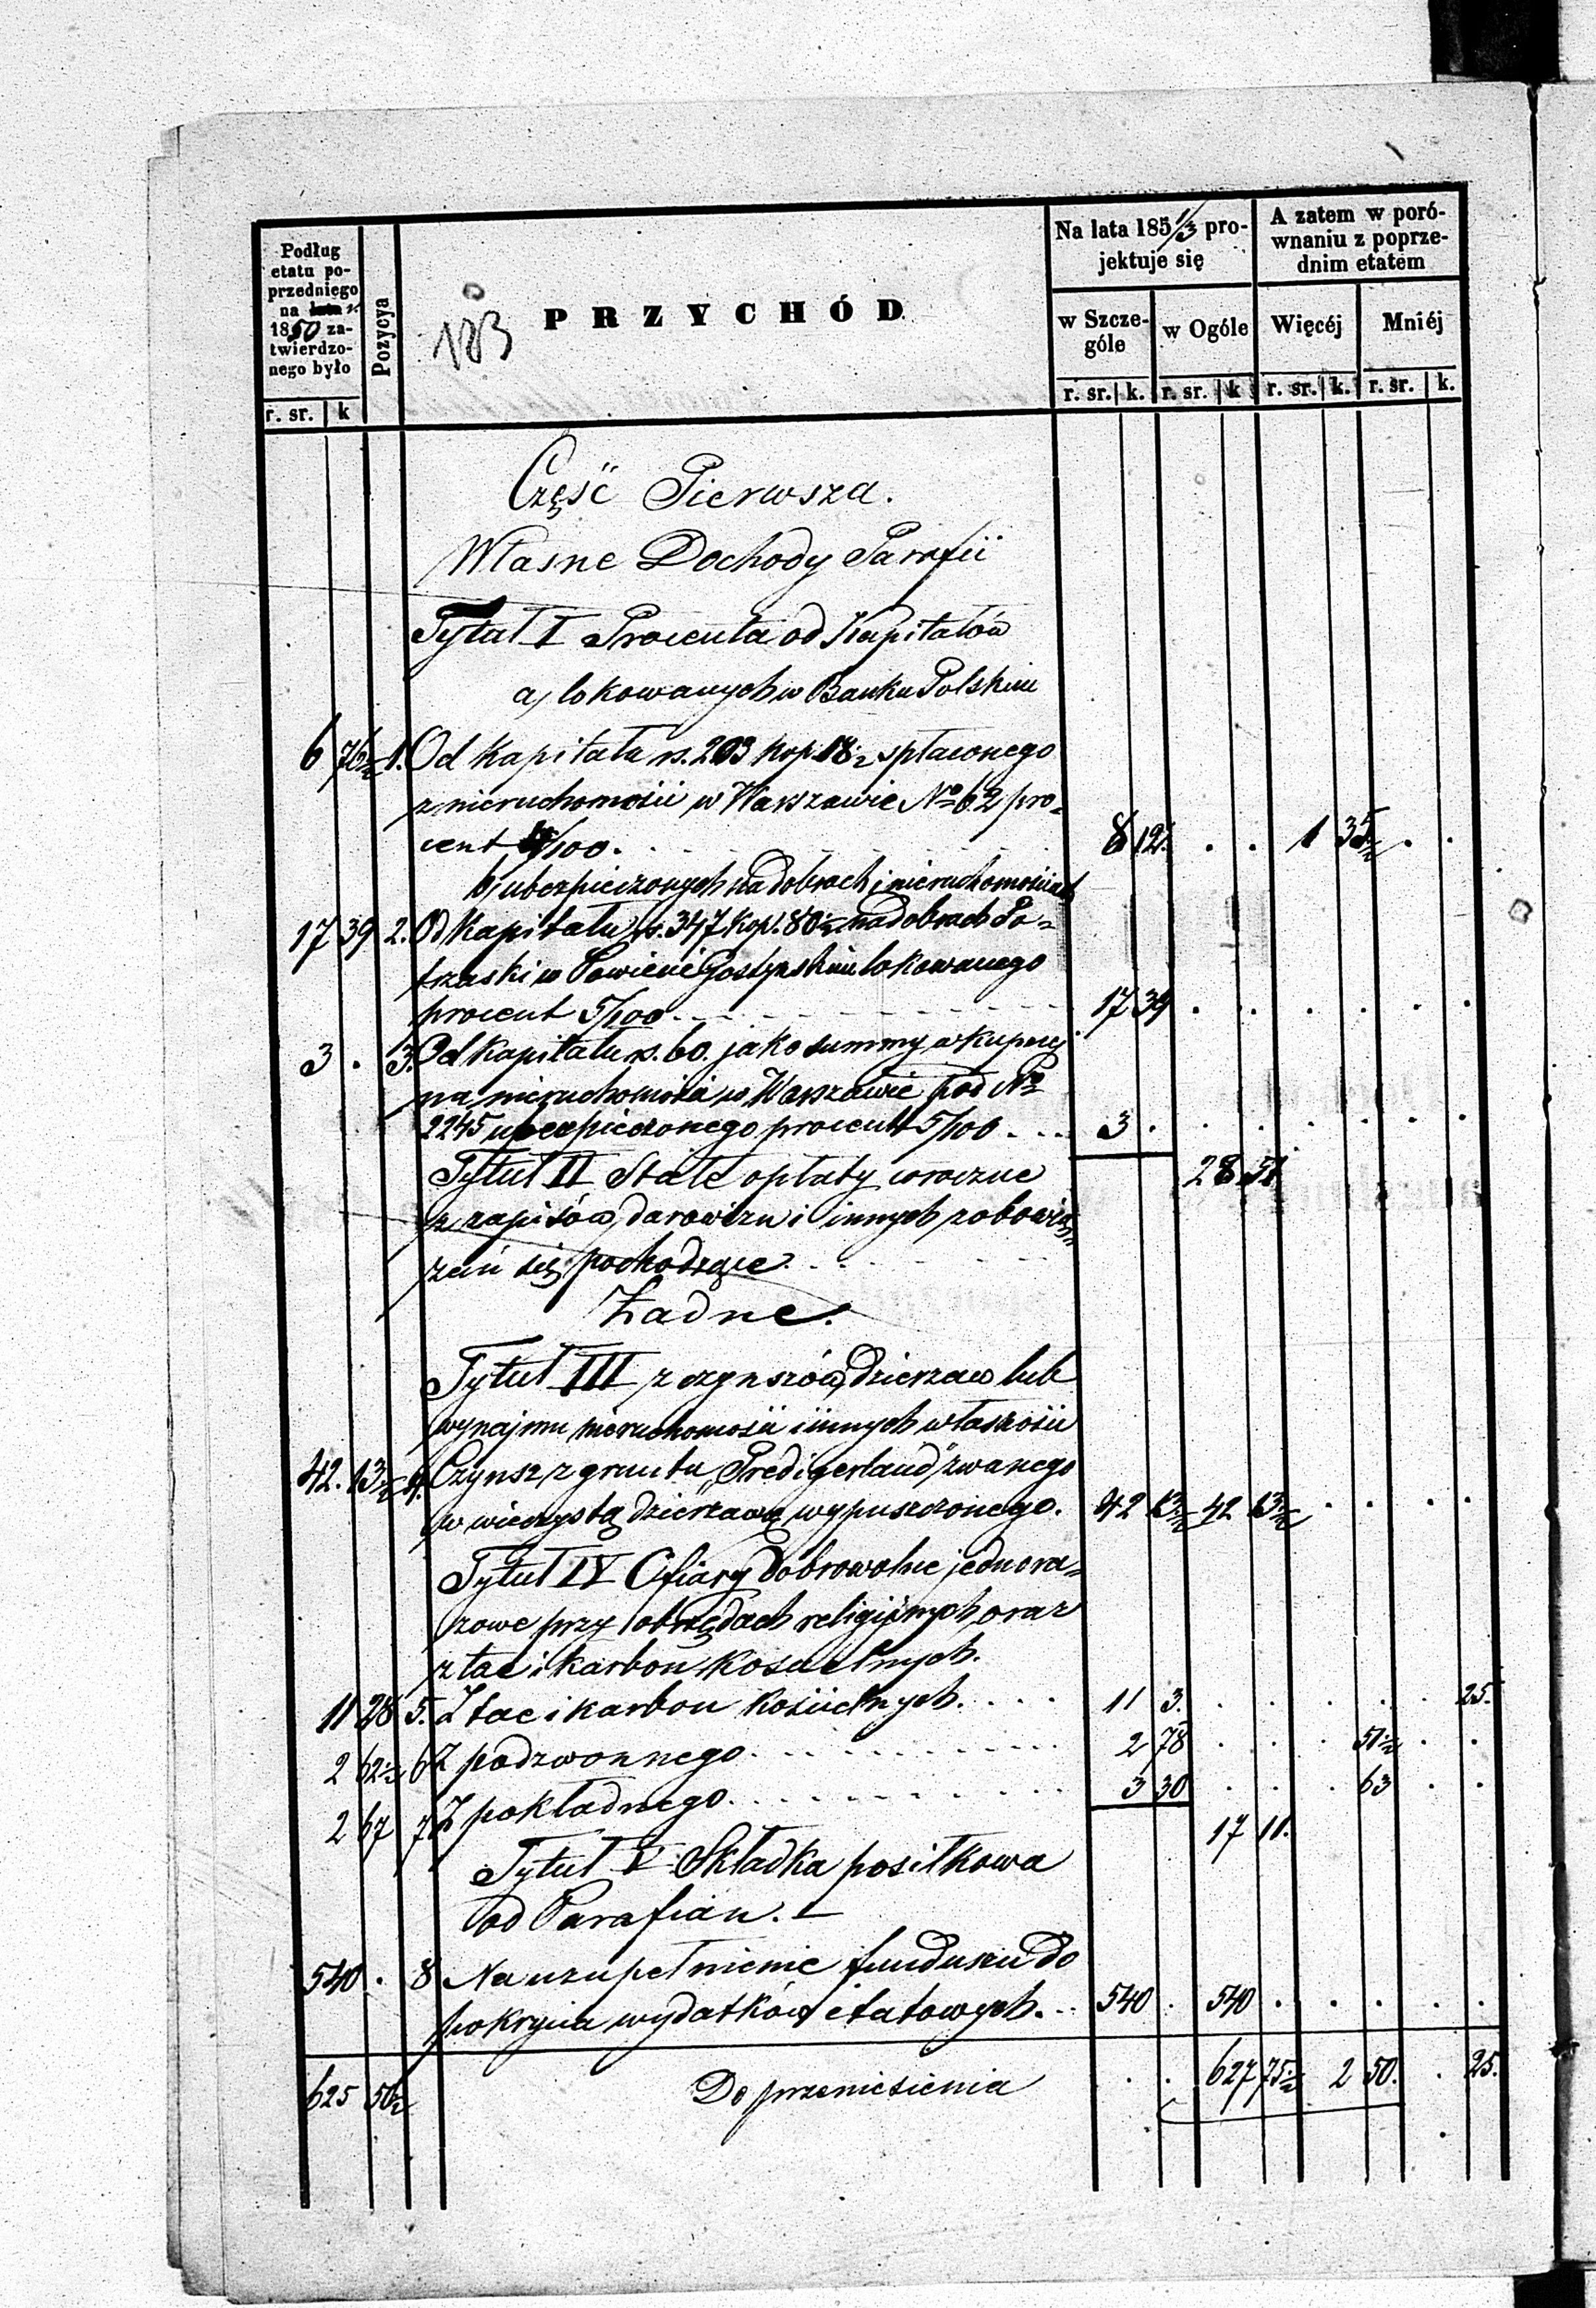 Podług
etatu po-
przedniego
na lata r.
1850 za-
twierdzo-
nego było
Pozycya
183
PRZYCHÓD
Na lata 185 1/3 pro-
jektuje się
A zatem w poró-
wnaniu z poprze-
dnim etatem
w Szcze-
góle
w Ogóle
Więcéj
Mniéj
r. sr. k
r. sr. k. r. sr. k r. sr. k. r. sr. k.
Część Pierwsza.
Własne Dochody Parafii
Tytuł I Procenta od Kapitałów
a, lokowanych w Banku Polskim
6 76½ 1. Od Kapitału rs. 203 kop. 18½ spłaconego
z nieruchomości w Warszawie No 62 pro-
cent 4/100. 8 12. . . 1 35½ . .
b, ubezpieczonych na dobrach i nieruchomościach
17 39 2. Od Kapitału rs. 347 kop. 80½ na dobrach Po-
trzaski w Powiecie Gostyńskim lokowanego
procent 5/100 17 39 . . . . . .
3 . 3. Od Kapitału rs. 60. jako summy wkupnej
na nieruchomości w Warszawie pod No
2245 ubezpieczonego procent 5/100 3 . . . . . . .
28 51
Tytuł II Stałe opłaty coroczne
z zapisów, darowizn i innych zobowią-
zań się pochodzące
Żadne.
Tytuł III z czynszów, dzierżaw lub
wynajmu nieruchomości i innych własności
42. 13½ 4. Czynsz z gruntu "Predigerland" zwanego
w wieczystą dzierżawę wypuszczonego. 42 13½ 42 13½ . . . .
Tytuł IV Ofiary dobrowolne jednora-
zowe przy obrzędach religijnych, oraz
z tac i karbon kościelnych.
11 28 5. Z tac i karbon kościelnych. 11 3. . . . . . 25.
2 62½ 6 Z podzwonnego 2 78 . . . 51½ . .
2 67 7 Z pokładnego 3 30 . . . 63 . .
17 11.
Tytuł V Składka posiłkowa
od Parafian.
540 . 8 Na uzupełnienie funduszu do
pokrycia wydatków etatowych. 540 . 540 . . . . .
625 50½ Do przeniesienia . . 627 75½ 2 50. . 25.